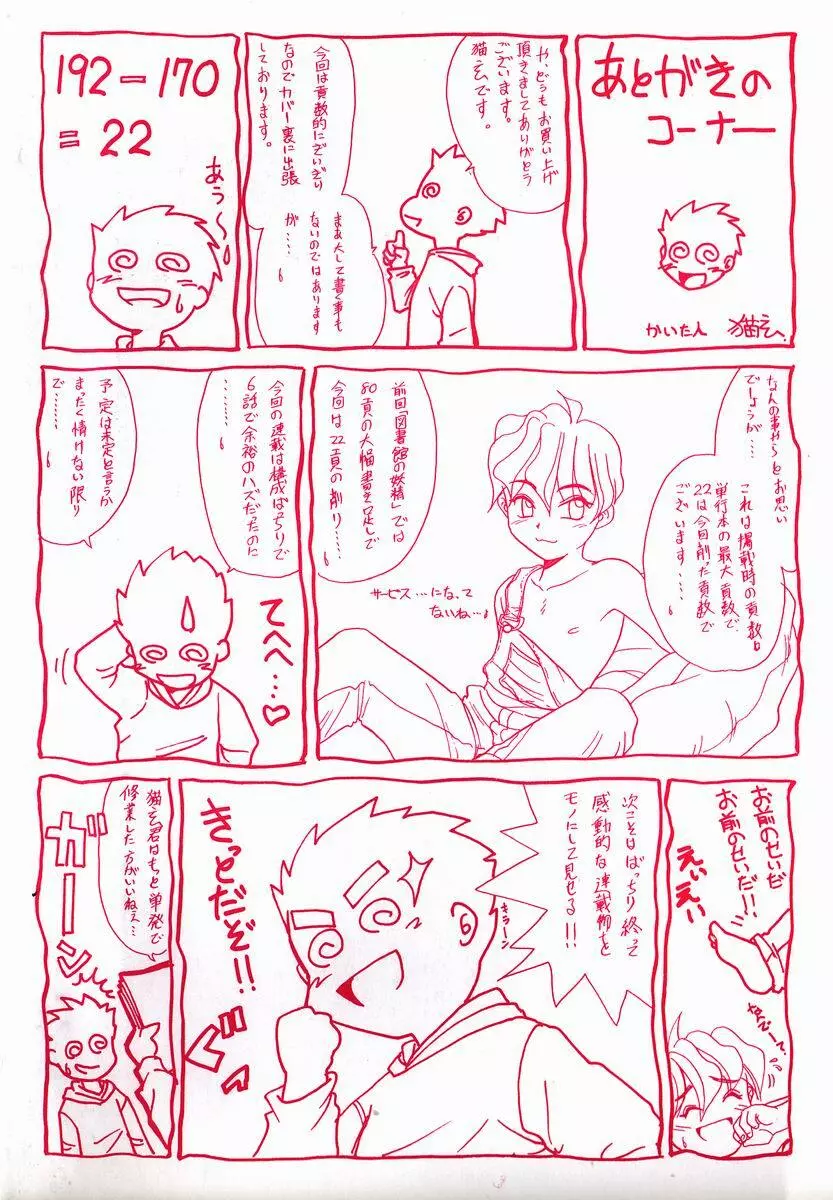 あとがきの
コーナー
かいた人 猫玄
や、どうもお買い上げ
頂きましてありがとう
ございます。
猫玄です。
今回は頁数的にぎいぎり
なのでカバー裏に出張
しております。
まあ大して書く事も
ないのではあります
が……
192－170
＝22
あう〜
なんの事やらとお思い
でしょうが…
これは掲載時の頁数と
単行本の最大頁数で、
22は今回削った頁数で
ございます……
前回「図書館の妖精」では
80頁の大幅書き足しで
今回は22頁の削り……
サービス…になって
ないね…
今回の連載は構成ばっちりで
6話で余裕のハズだったのに
………
予定は未定と言うか
まったく情けない限り
で……
てへへ…♡
お前のせいだ
お前のせいだ!!
えいえい
次こそはばっちり終って
感動的な連載物を
モノにして見せる!!
キラーン
きっとだぞ!!
ぐっ
猫玄君はもっと単発で
修業した方がいいねえ…
ガーン